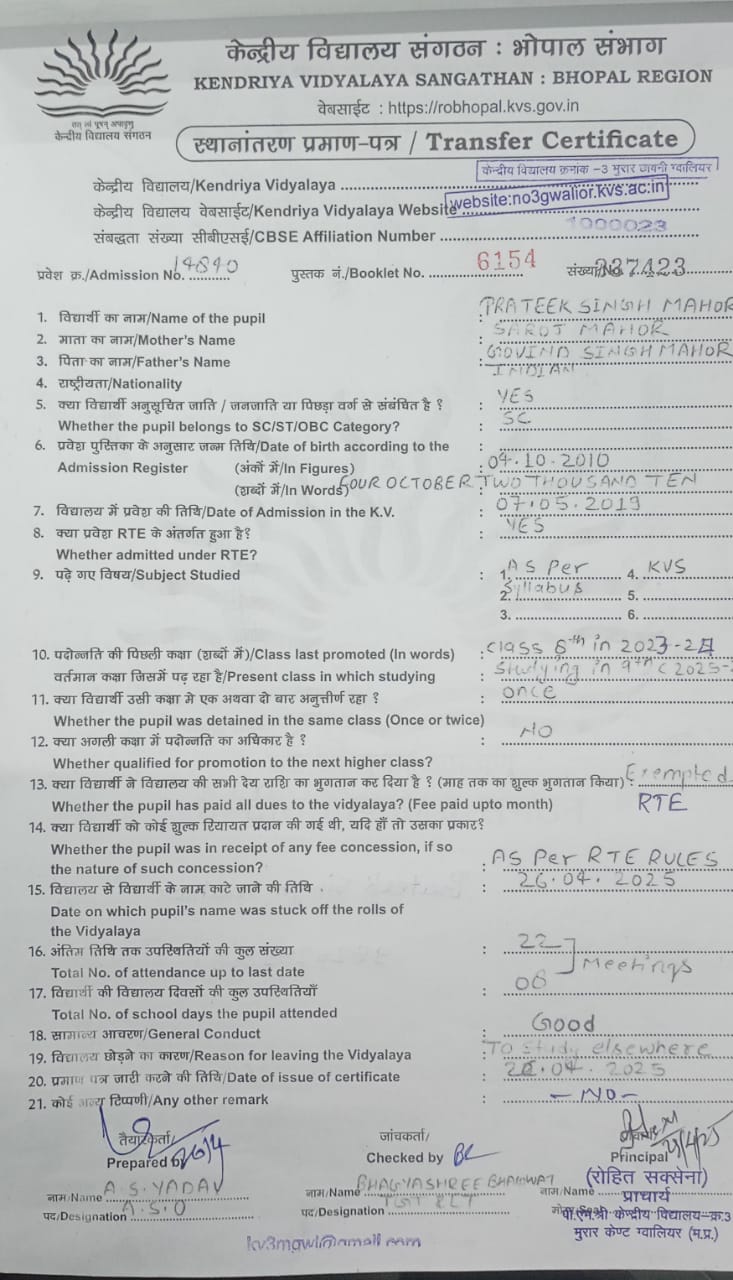 केन्द्रीय विद्यालय संगठन : भोपाल संभाग
KENDRIYA VIDYALAYA SANGATHAN : BHOPAL REGION
वेबसाईट : https://robhopal.kvs.gov.in
तत् त्वं पूषन् अपावृणु
केन्द्रीय विद्यालय संगठन
स्थानांतरण प्रमाण-पत्र / Transfer Certificate
केन्द्रीय विद्यालय/Kendriya Vidyalaya केन्द्रीय विद्यालय क्रमांक -3 मुरार छावनी ग्वालियर
केन्द्रीय विद्यालय वेबसाईट/Kendriya Vidyalaya Website website:no3gwalior.kvs.ac.in
संबद्धता संख्या सीबीएसई/CBSE Affiliation Number 1000023
प्रवेश क्र./Admission No. 14840 पुस्तक नं./Booklet No. 6154 संख्या/No. 237423
1. विद्यार्थी का नाम/Name of the pupil : PRATEEK SINGH MAHOR
2. माता का नाम/Mother's Name : SAROJ MAHOR
3. पिता का नाम/Father's Name : GOVIND SINGH MAHOR
4. राष्ट्रीयता/Nationality : INDIAN
5. क्या विद्यार्थी अनुसूचित जाति / जनजाति या पिछड़ा वर्ग से संबंधित है ? : YES
Whether the pupil belongs to SC/ST/OBC Category? : SC
6. प्रवेश पुस्तिका के अनुसार जन्म तिथि/Date of birth according to the :
Admission Register (अंकों में/In Figures) : 04.10.2010
(शब्दों में/In Words) FOUR OCTOBER TWO THOUSAND TEN
7. विद्यालय में प्रवेश की तिथि/Date of Admission in the K.V. : 07.05.2019
8. क्या प्रवेश RTE के अंतर्गत हुआ है? : YES
Whether admitted under RTE?
9. पढ़े गए विषय/Subject Studied : 1. AS Per 4. KVS
2. Syllabus 5.
3. 6.
10. पदोन्नति की पिछली कक्षा (शब्दों में)/Class last promoted (In words) : Class 8th in 2023-24
वर्तमान कक्षा जिसमें पढ़ रहा है/Present class in which studying : Studying in 9th (2025-
11. क्या विद्यार्थी उसी कक्षा मे एक अथवा दो बार अनुत्तीर्ण रहा ? : once
Whether the pupil was detained in the same class (Once or twice)
12. क्या अगली कक्षा में पदोन्नति का अधिकार है ? : NO
Whether qualified for promotion to the next higher class?
13. क्या विद्यार्थी ने विद्यालय की सभी देय राशि का भुगतान कर दिया है ? (माह तक का शुल्क भुगतान किया) : Exempted
Whether the pupil has paid all dues to the vidyalaya? (Fee paid upto month) RTE
14. क्या विद्यार्थी को कोई शुल्क रियायत प्रदान की गई थी, यदि हाँ तो उसका प्रकार?
Whether the pupil was in receipt of any fee concession, if so
the nature of such concession? : AS Per RTE RULES
15. विद्यालय से विद्यार्थी के नाम काटे जाने की तिथि : 26.04.2025
Date on which pupil's name was stuck off the rolls of
the Vidyalaya
16. अंतिम तिथि तक उपस्थितियों की कुल संख्या : 22
Total No. of attendance up to last date Meetings
17. विद्यार्थी की विद्यालय दिवसों की कुल उपस्थितियाँ : 08
Total No. of school days the pupil attended
18. सामान्य आचरण/General Conduct : Good
19. विद्यालय छोड़ने का कारण/Reason for leaving the Vidyalaya : To study elsewhere
20. प्रमाण पत्र जारी करने की तिथि/Date of issue of certificate : 26.04.2025
21. कोई अन्य टिप्पणी/Any other remark : - NO -
तैयारकर्ता/ जांचकर्ता/
Prepared by 26/4 Checked by Principal
नाम/Name A.S.YADAV नाम/Name BHAGYASHREE BHAGWAT नाम/Name (रोहित सक्सेना)
पद/Designation A.S.O पद/Designation TGT प्राचार्य
पी.एम.श्री केन्द्रीय विद्यालय-क्र.3
मुरार केण्ट ग्वालियर (म.प्र.)
kv3mgwl@gmail.com